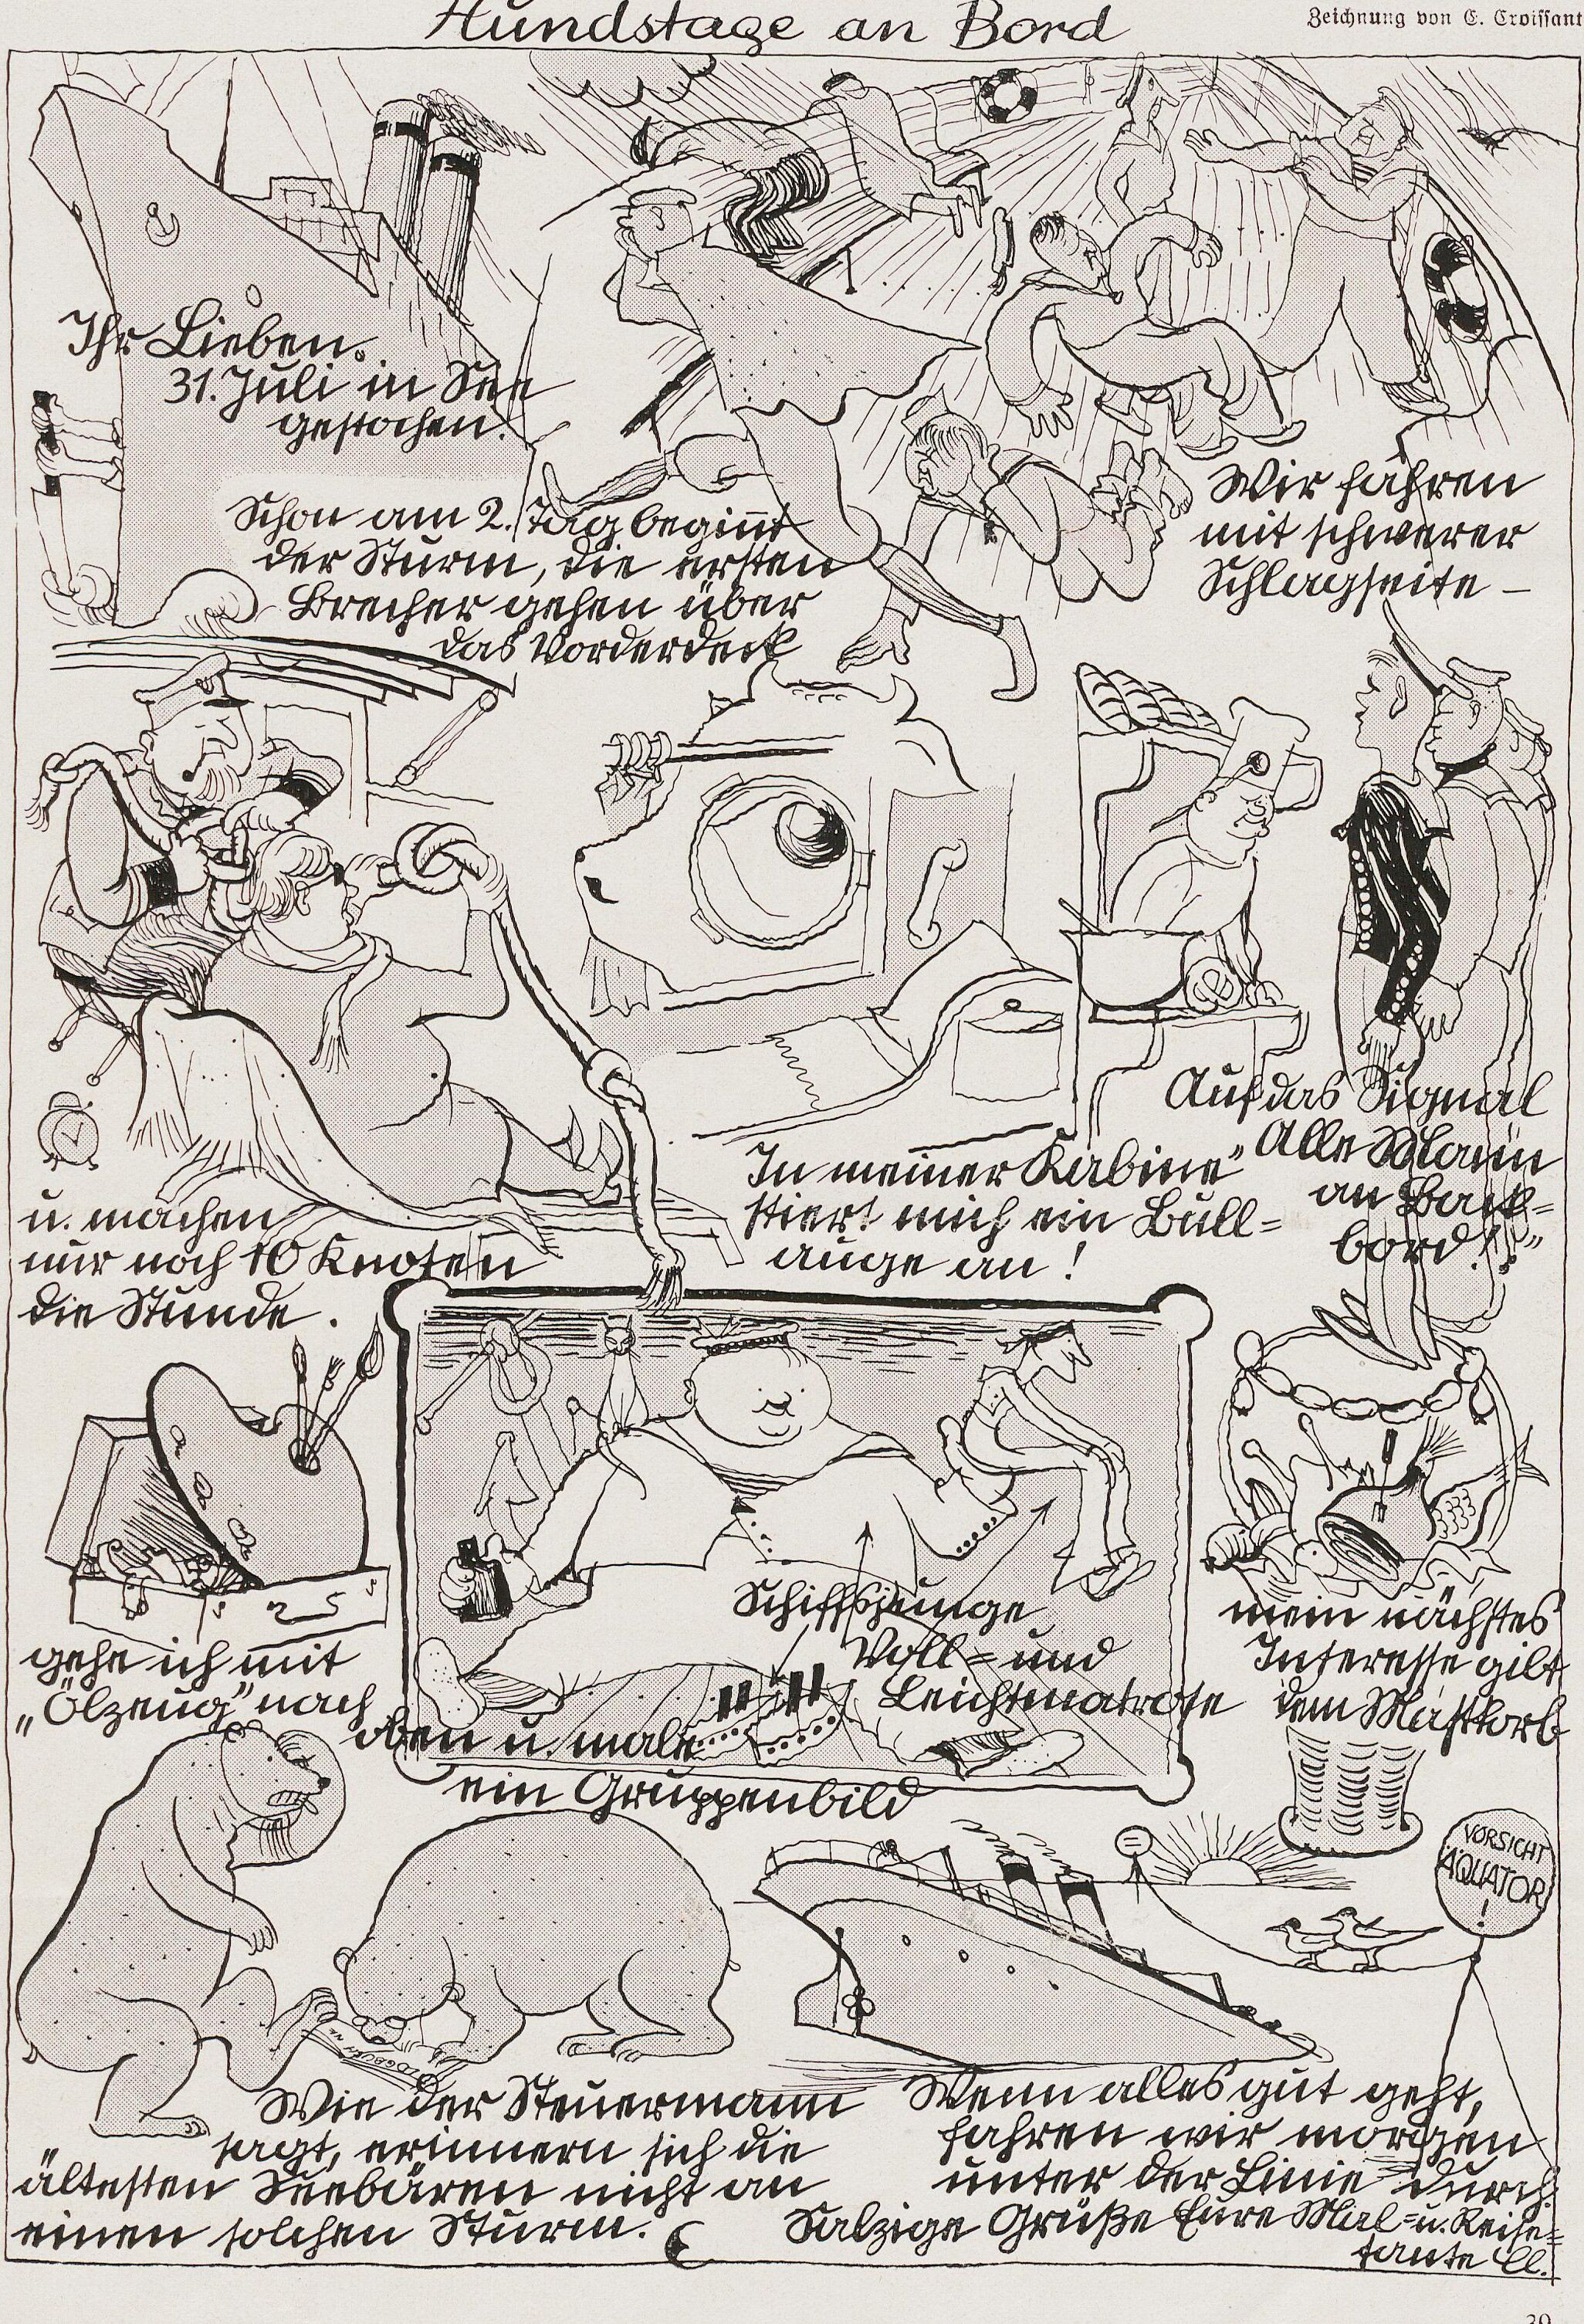 Hundstage an Bord
Zeichnung von E. Croissant
Ihr Lieben.
31. Juli in See
gestochen.
Schon am 2. Tag beginnt
der Sturm, die ersten
Brecher gehen über
das Vorderdeck
Wir fahren
mit schwerer
Schlagseite –
u. machen
nur noch 10 Knoten
die Stunde.
In meiner Kabine
stiert mich ein Bull=
auge an!
Auf das Signal
"Alle Mann
an Back=
bord!"
gehe ich mit
„Ölzeug" nach
oben u. male
ein Gruppenbild
Schiffsjunge
Voll= und
Leichtmatrose
mein nächstes
Interesse gibt
dem Mastkorb
VORSICHT
ÄQUATOR
!
LOGBUCH
Wie der Steuermann
sagt, erinnern sich die
ältesten Seebären nicht an
einen solchen Sturm.
Wenn alles gut geht,
fahren wir morgen
unter der Linie durch.
Salzige Grüße Eure Mal= u. Reise=
tante
39